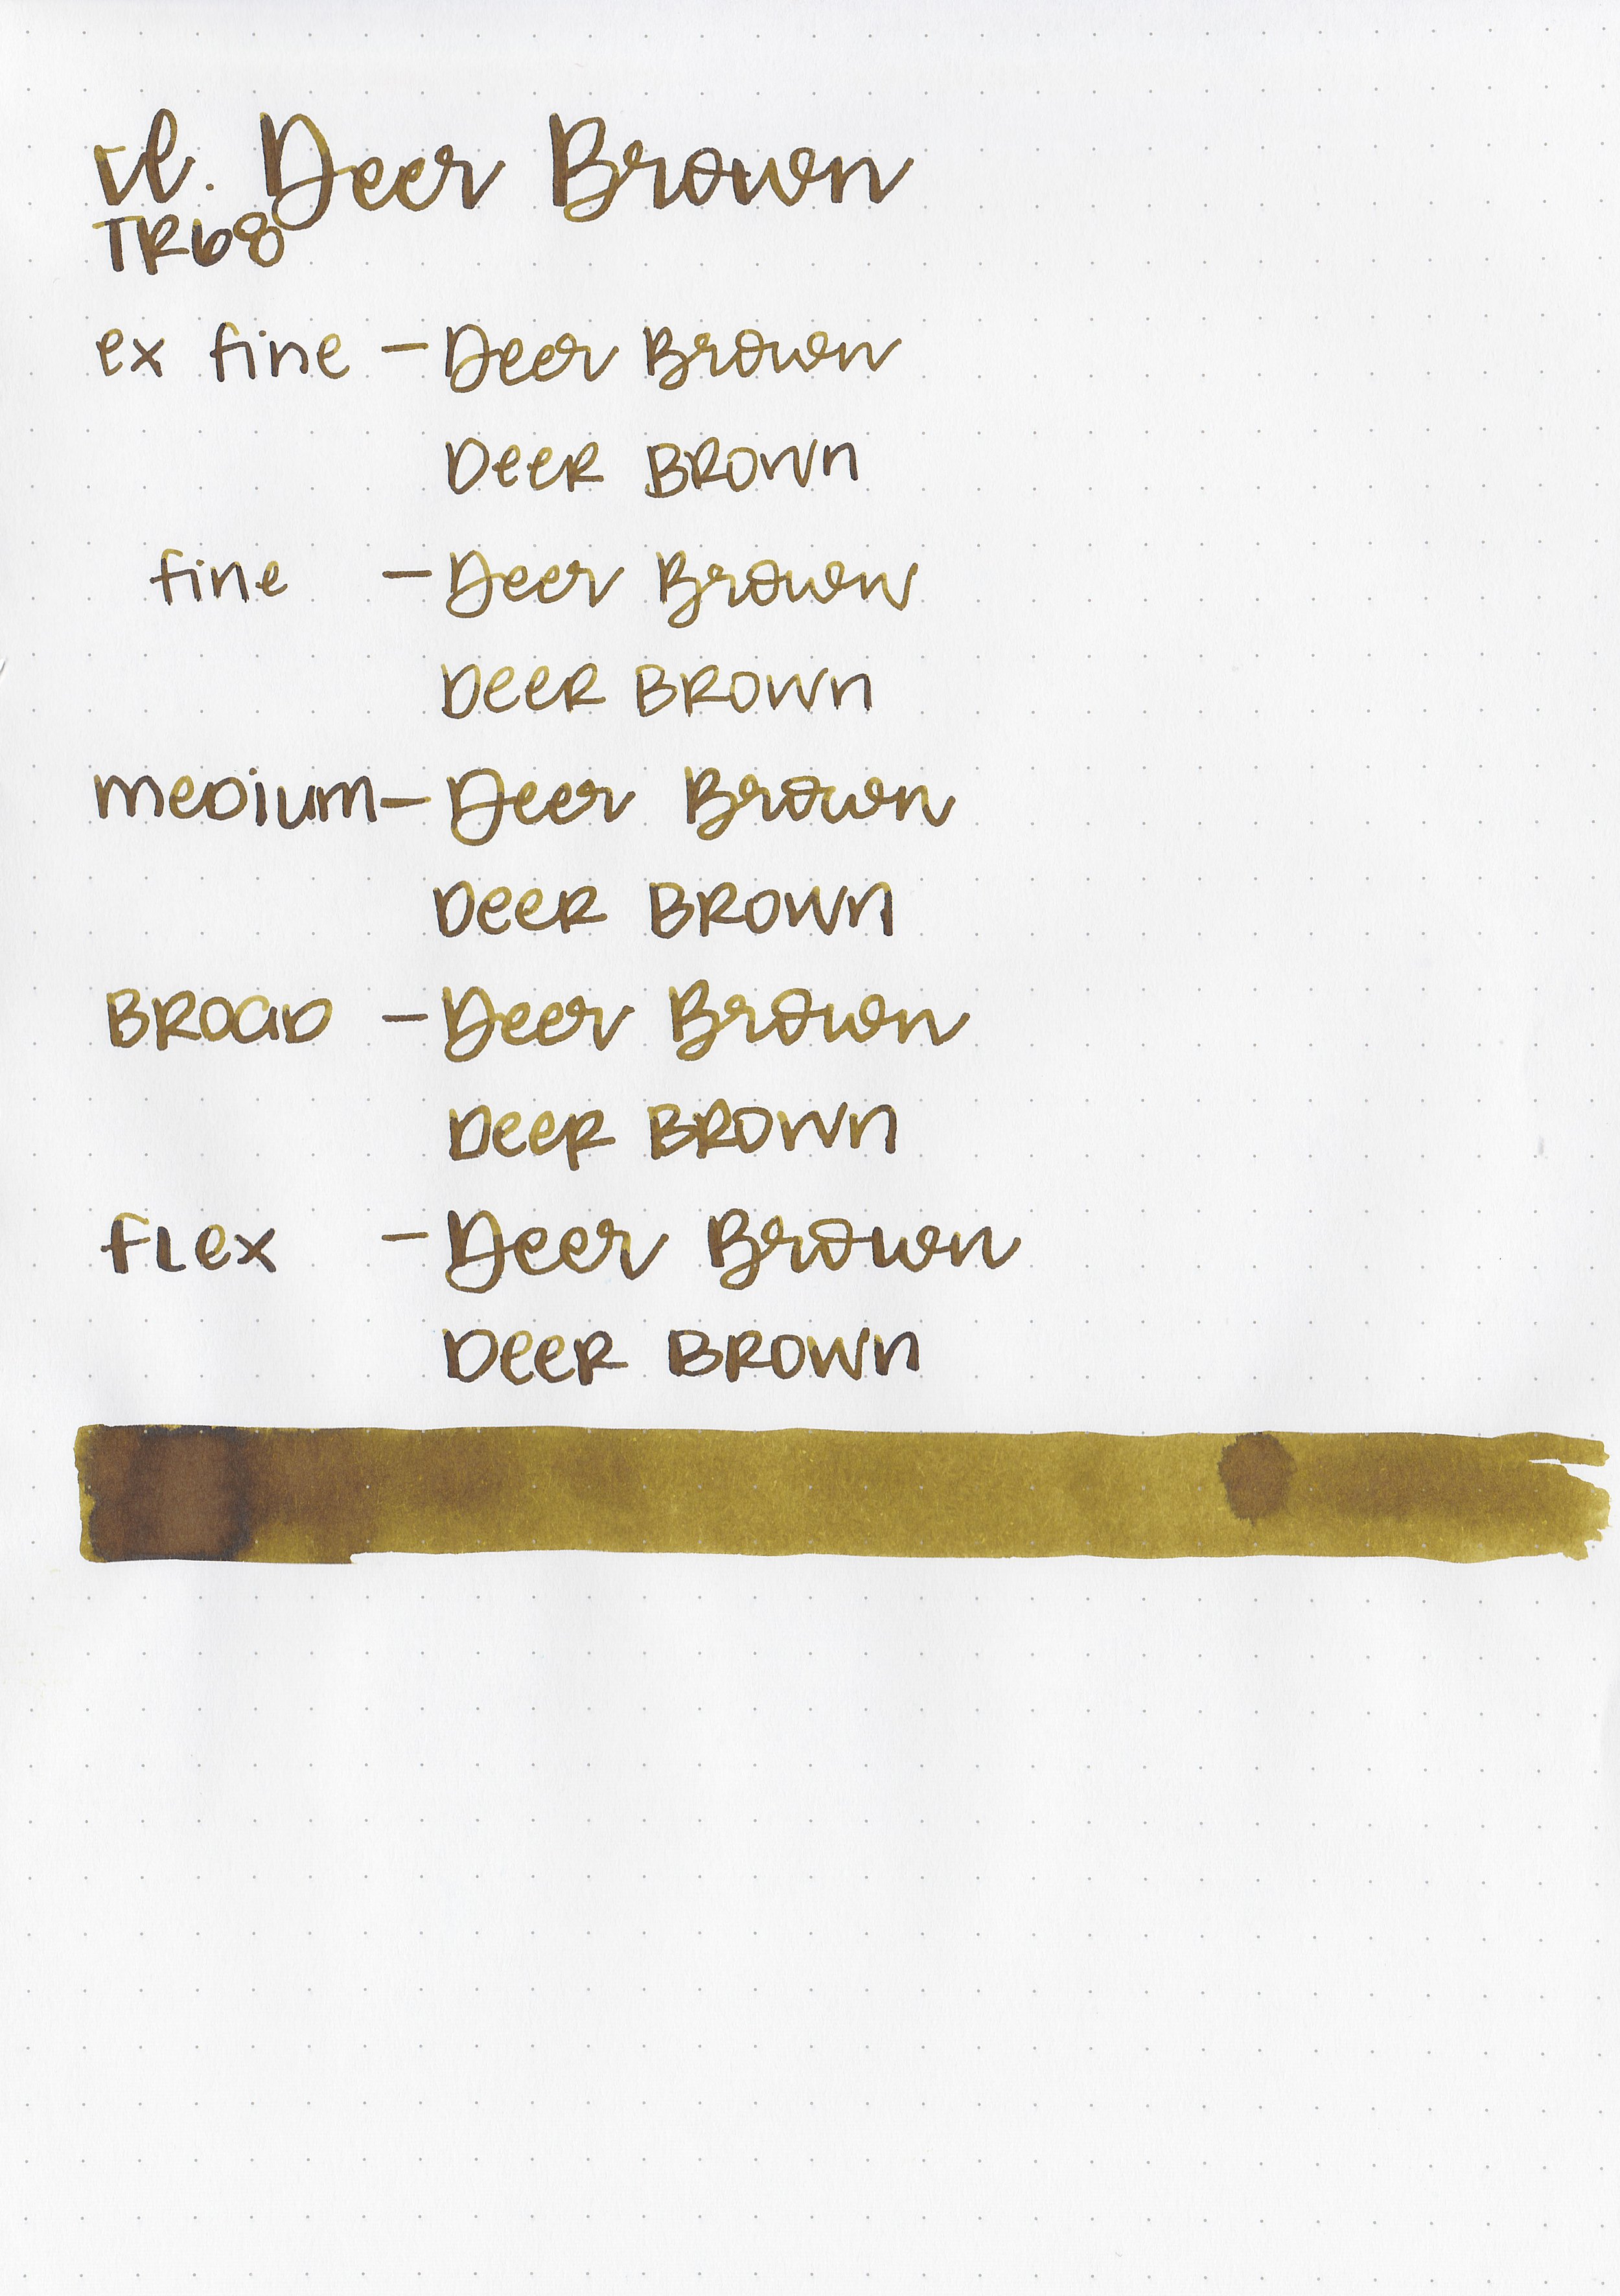 Deer Brown
TR68
ex fine - Deer Brown
DeeR BROWn
fine - Deer Brown
DeeR BROWn
meDium - Deer Brown
DeeR BROWn
BROaD - Deer Brown
DeeR BROWn
fLex - Deer Brown
DeeR BROWn